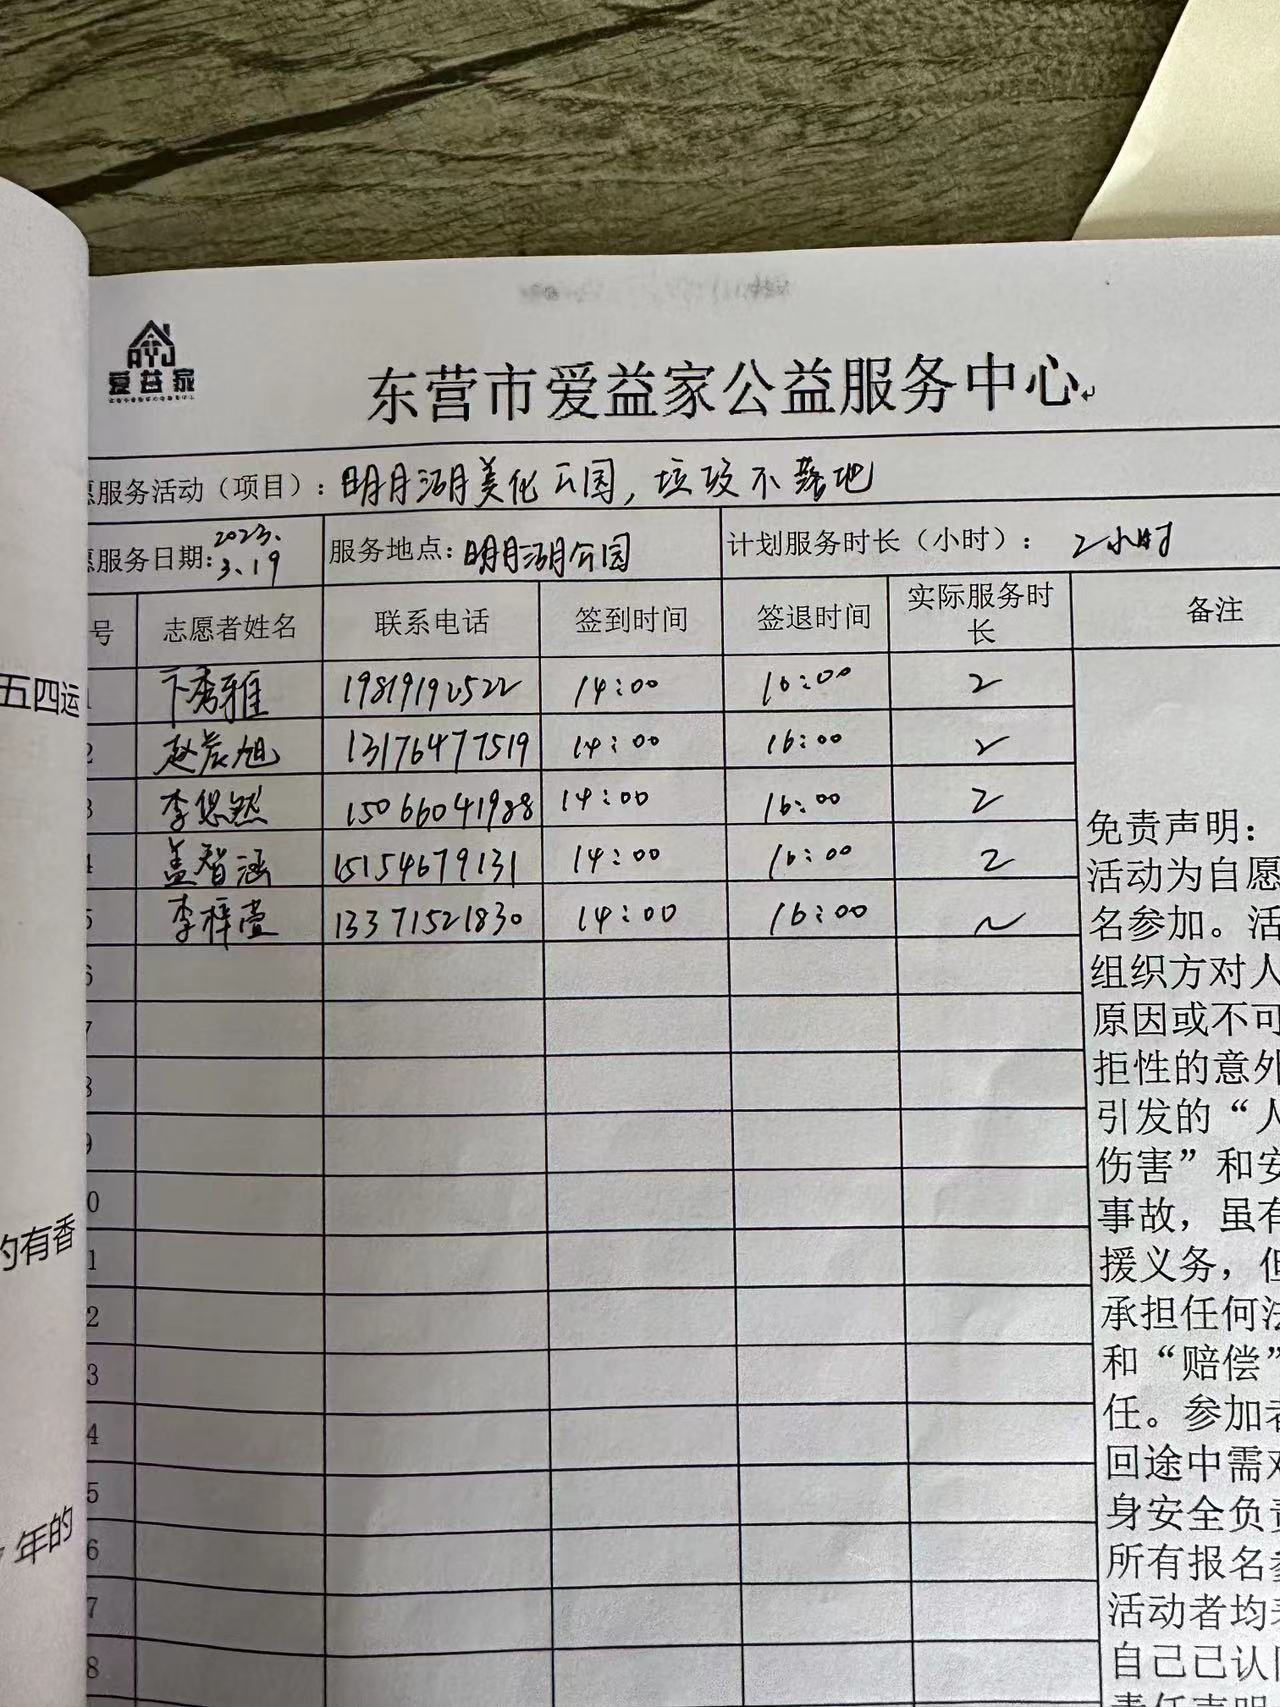 爱益家
东营市爱益家公益服务中心
愿服务活动（项目）：明月湖美化公园，垃圾不落地
愿服务日期：2023.3.19 服务地点：明月湖公园 计划服务时长（小时）： 2小时
号 志愿者姓名 联系电话 签到时间 签退时间 实际服务时长 备注
1 卞秀雅 19819192522 14:00 16:00 2
2 赵晨旭 13176477519 14:00 16:00 2
3 李悠然 15066041988 14:00 16:00 2
4 盖智涵 15154679131 14:00 16:00 2
5 李梓萱 13371521830 14:00 16:00 2
6
7
8
9
0
1
2
3
4
5
6
7
8
免责声明：
活动为自愿
名参加。活
组织方对人
原因或不可
拒性的意外
引发的“人
伤害”和安
事故，虽有
援义务，但
承担任何法
和“赔偿”
任。参加者
回途中需对
身安全负责
所有报名参
活动者均
自己已认
责任声明
五四运
的有香
年的